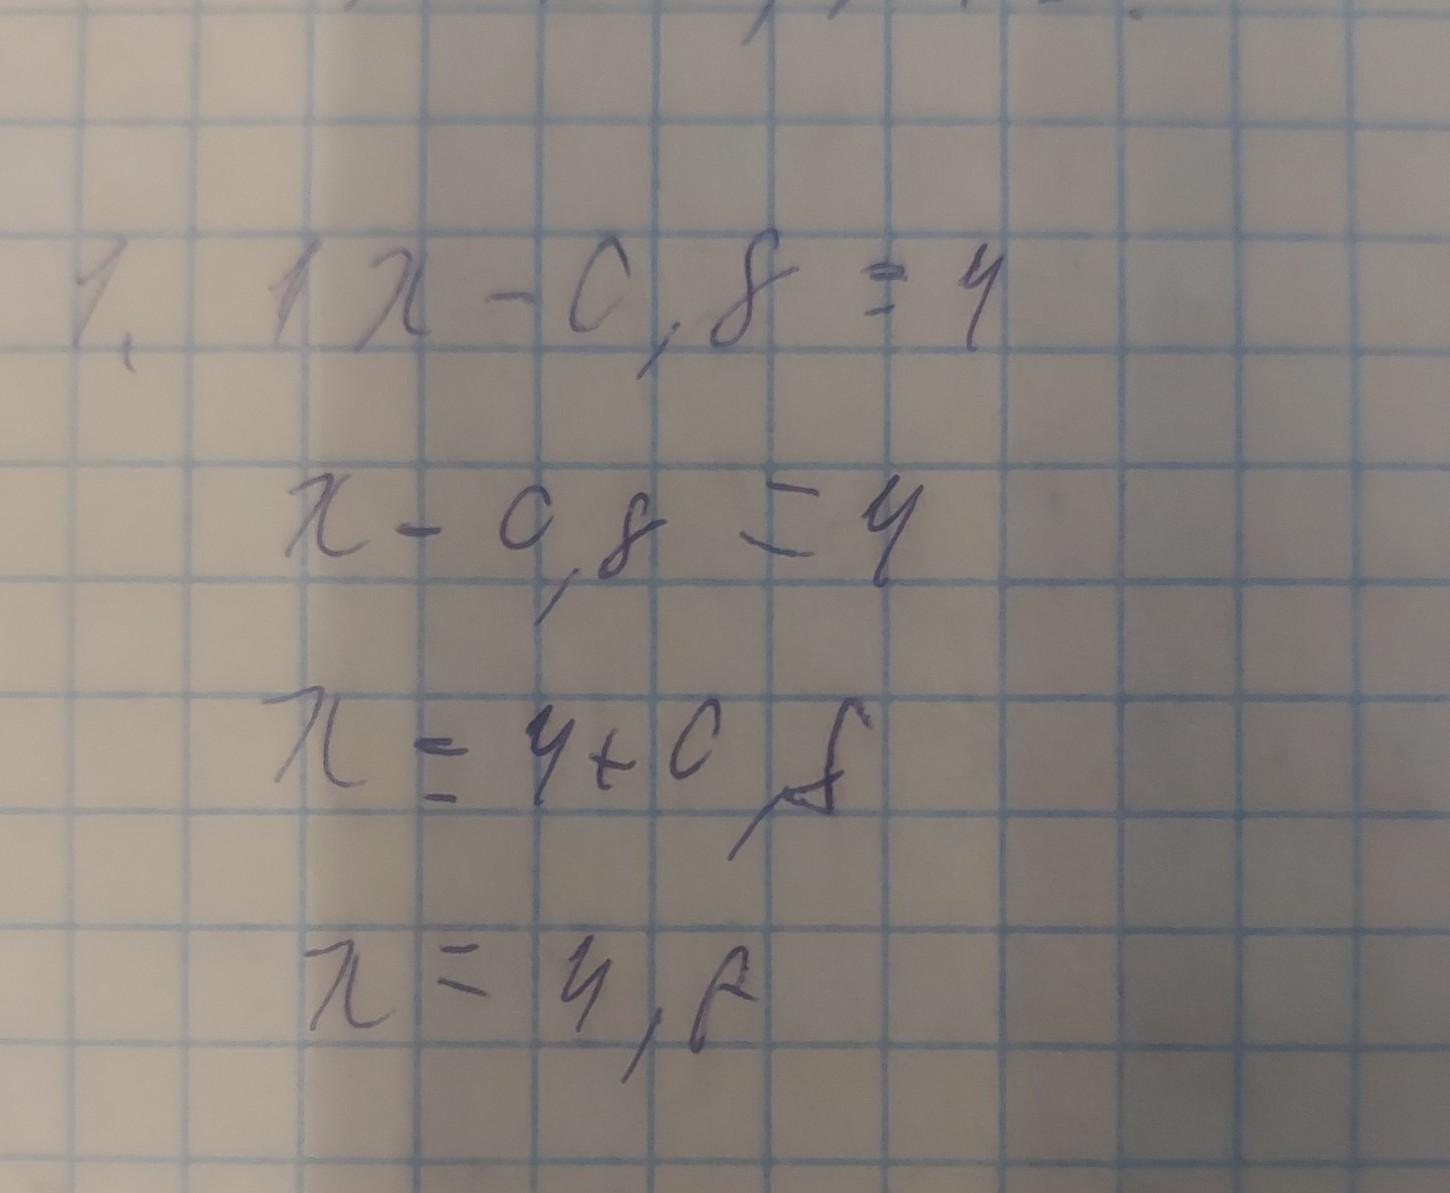 1. 1x - 0,8 = 4
x - 0,8 = 4
x = 4 + 0,8
x = 4,8